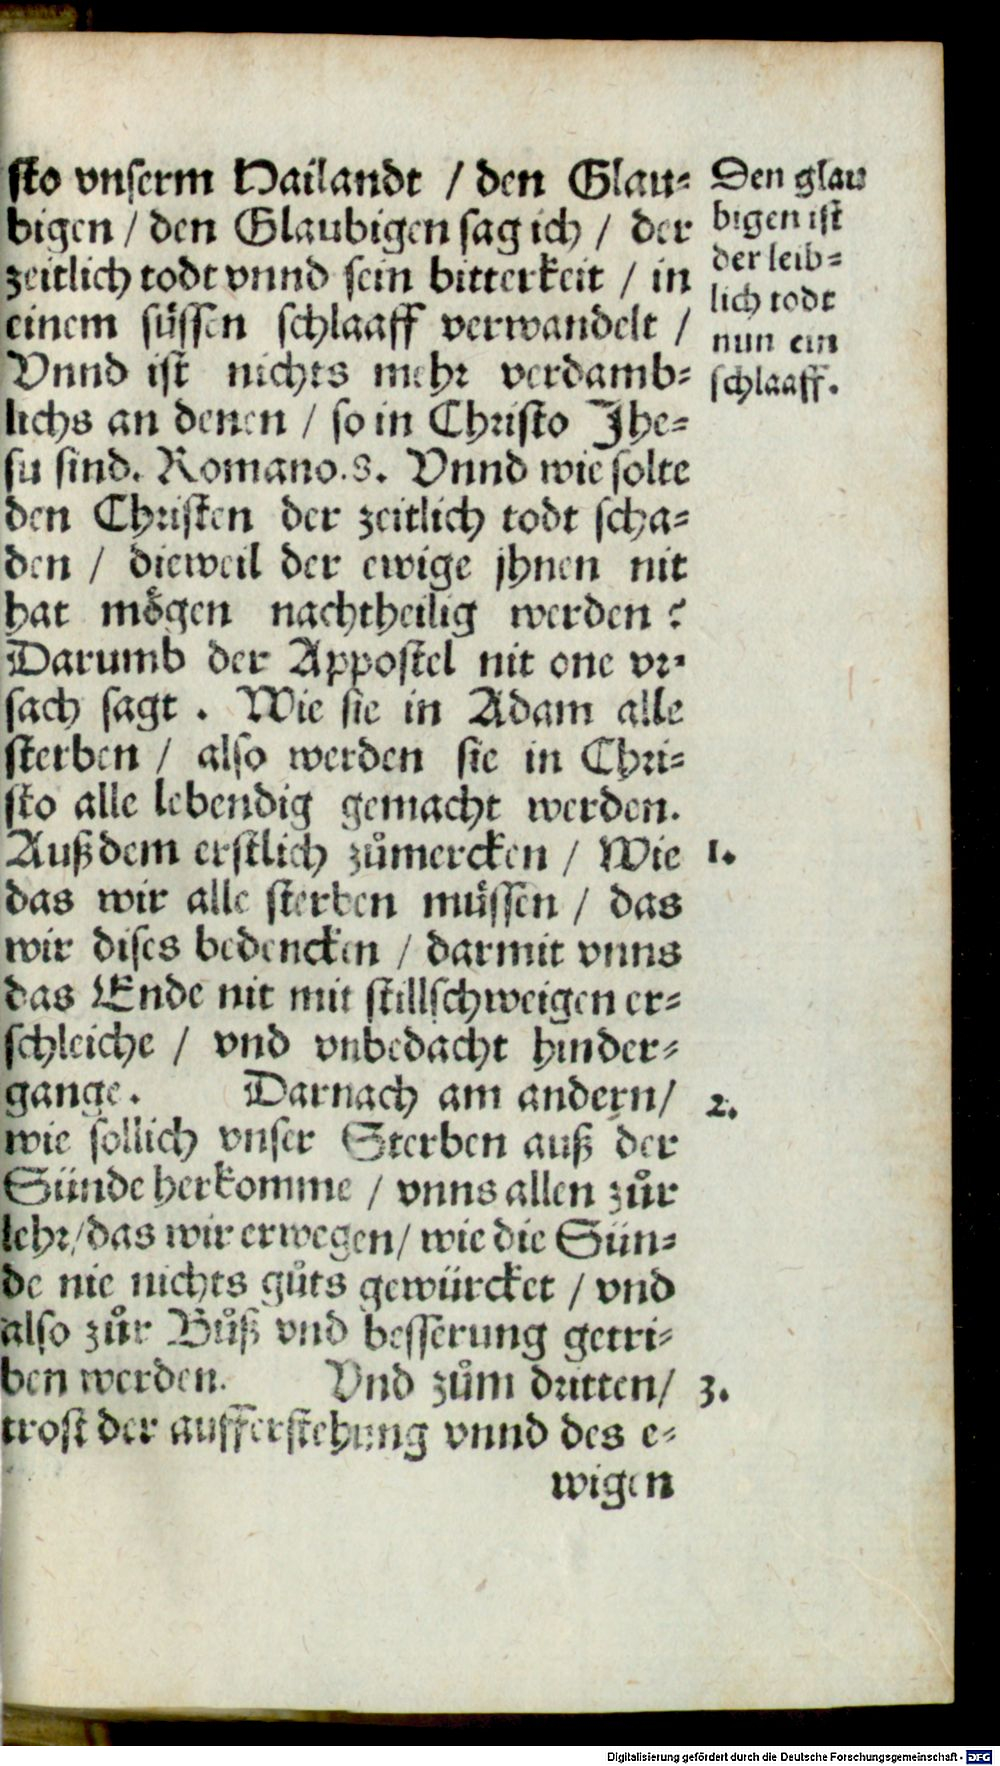 sto vnserm Hailandt / den Glau-
bigen / den Glaubigen sag ich / der
zeitlich todt vnnd sein bitterkeit / in
einem süssen schlaaff verwandelt /
Vnnd ist nichts mehr verdamb-
lichs an denen / so in Christo Jhe-
su sind. Romano.8. Vnnd wie solte
den Christen der zeitlich todt scha-
den / dieweil der ewige jhnen nit
hat mögen nachtheilig werden ?
Darumb der Appostel nit one vr-
sach sagt . Wie sie in Adam alle
sterben / also werden sie in Chri-
sto alle lebendig gemacht werden.
Auß dem erstlich zůmercken / Wie
das wir alle sterben müssen / das
wir dises bedencken / darmit vnns
das Ende nit mit stillschweigen er-
schleiche / vnd vnbedacht hinder-
gange. Darnach am andern/
wie sollich vnser Sterben auß der
Sünde herkomme / vnns allen zůr
lehr/das wir erwegen/ wie die Sün-
de nie nichts gůts gewürcket / vnd
also zůr Bůß vnd besserung getri-
ben werden. Vnd zům dritten/
trost der aufferstehung vnnd des e-
wigen
Den glau
bigen ist
der leib-
lich todt
nun ein
schlaaff.
1.
2.
3.
Digitalisierung gefördert durch die Deutsche Forschungsgemeinschaft - DFG